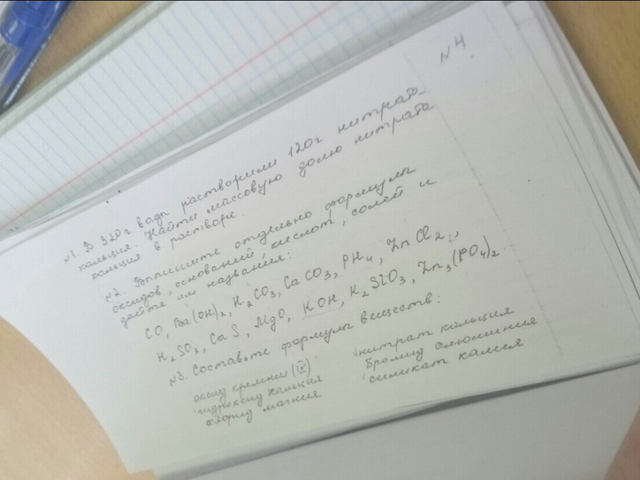 N 4
N1. В 320г воды растворили 120г нитрата
кальция. Найти массовую долю нитрата
кальция в растворе.
N2. Выпишите отдельно формулы
оксидов, оснований, кислот, солей и
дайте им названия:
CO, Ba(OH)2, K2CO3, CaCO3, PH4, ZnCl2,
H2SO3, CaS, MgO, KOH, K2SiO3, Zn3(PO4)2.
N3. Составьте формулы веществ:
оксид кремния (IV) нитрат кальция
гидроксид кальция бромид алюминия
хлорид магния силикат калия